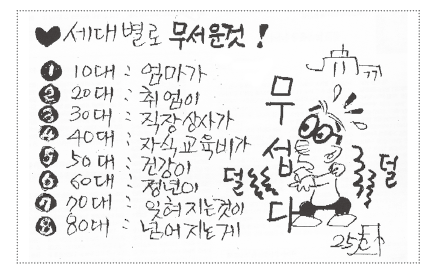 ♥ 세대별로 무서운것!
❶ 10대 : 엄마가
❷ 20대 : 취업이
❸ 30대 : 직장상사가
❹ 40대 : 자식교육비가
❺ 50대 : 건강이
❻ 60대 : 정년이
❼ 70대 : 잊혀지는것이
❽ 80대 : 넘어지는게
무섭다
덜
덜